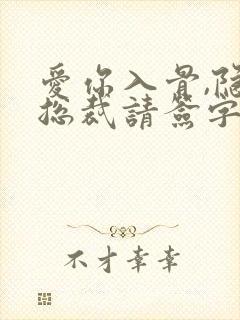 愛你入骨,隱
總裁請簽字
不才幸幸